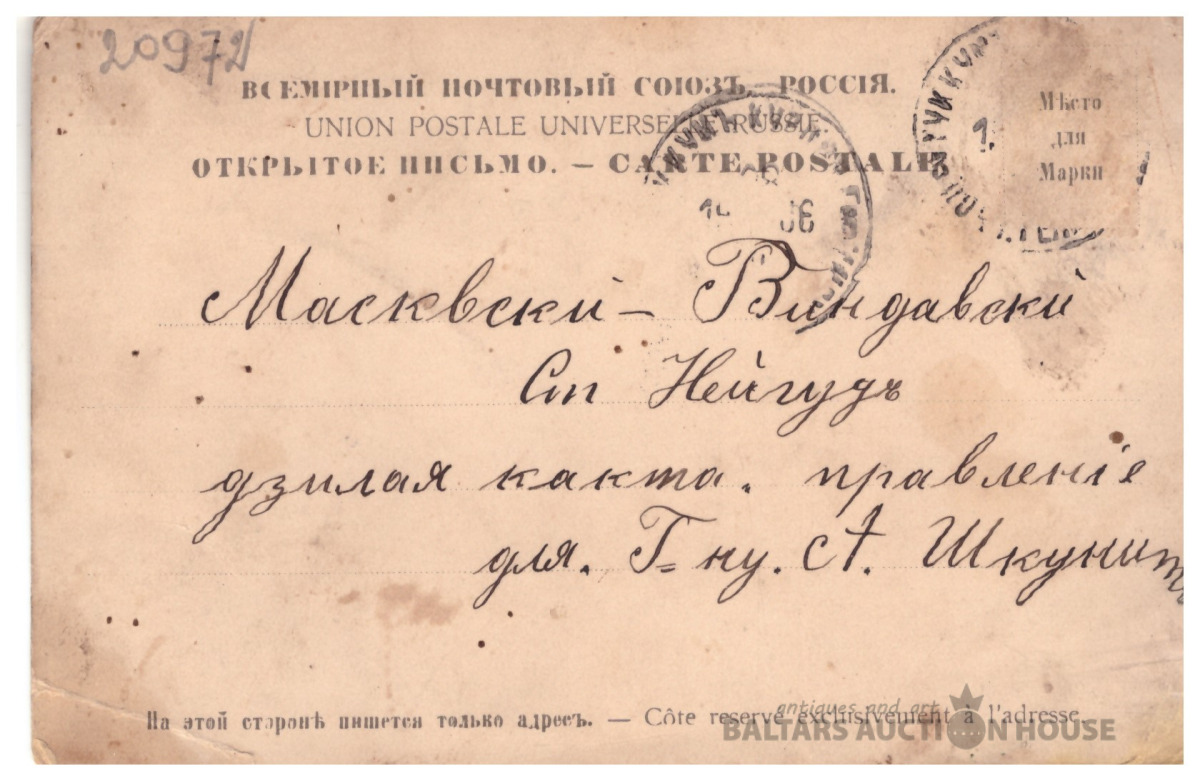 20972
ВСЕМІРНЫЙ ПОЧТОВЫЙ СОЮЗЪ. РОССІЯ.
UNION POSTALE UNIVERSELLE. RUSSIE
ОТКРЫТОЕ ПИСЬМО. — CARTE POSTALE
Мѣсто
для
Марки
06
Масквский - Виндавский
Ст Нейгудъ
дзилая какта. правленіе
для. Г=ну. А. Шкунит
На этой сторонѣ пишется только адресъ. — Côte reservé exclusivement à l'adresse.
antiques and art
BALTARS AUCTION HOUSE